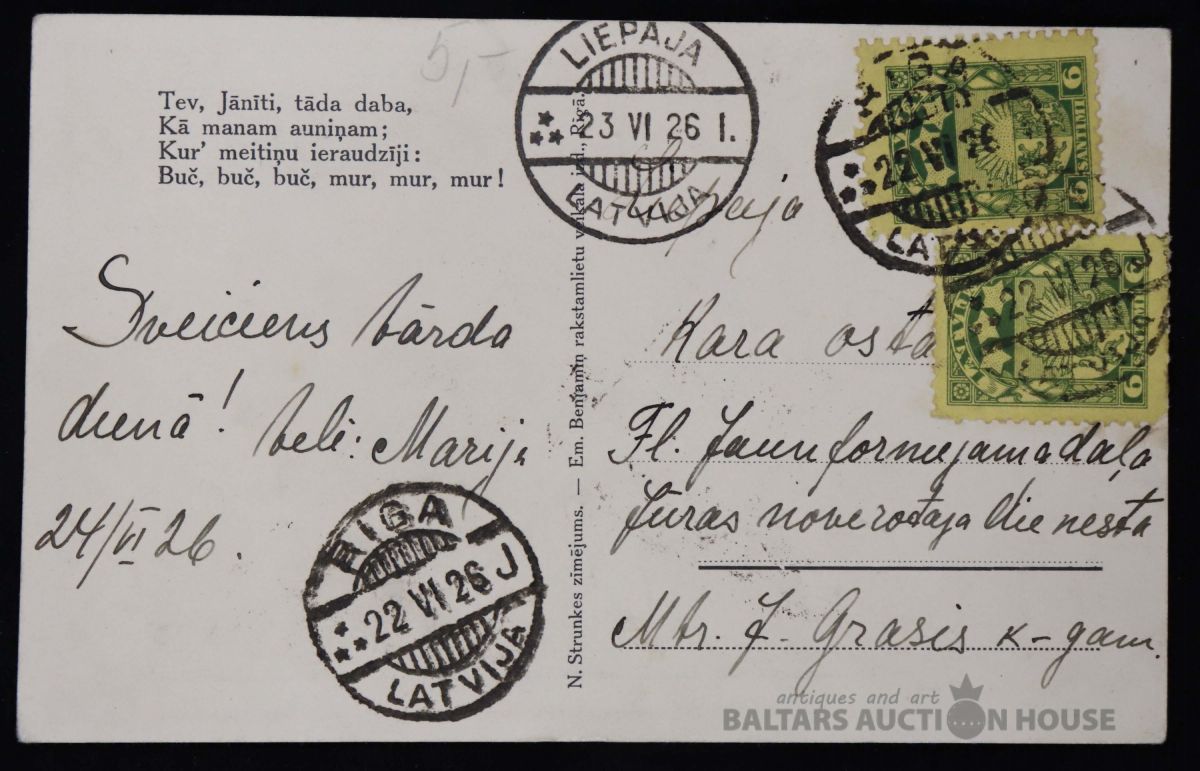 5,-
Tev, Jānīti, tāda daba,
Kā manam auniņam;
Kur' meitiņu ieraudzīji:
Buč, buč, buč, mur, mur, mur!
Sveiciens vārda
dienā! veli: Marija
24/VI 26.
RIGA
22 VI 26 J
LATVIJA
N. Strunkes zīmējums. — Em. Benjamiņ rakstamlietu veikala izd., Rīgā.
LIEPAJA
23 VI 26 I.
LATVIJA
Liepaja
Kara osta
Fl. Jaunformejamā daļa
Jūras noverotaja dienesta
Mtr. J. Grasis k-gam.
6 SANTIMI 6
22 VI 26
LATVIJA
LATVIJA
22 VI 26
6 6
antiques and art
BALTARS AUCTION HOUSE